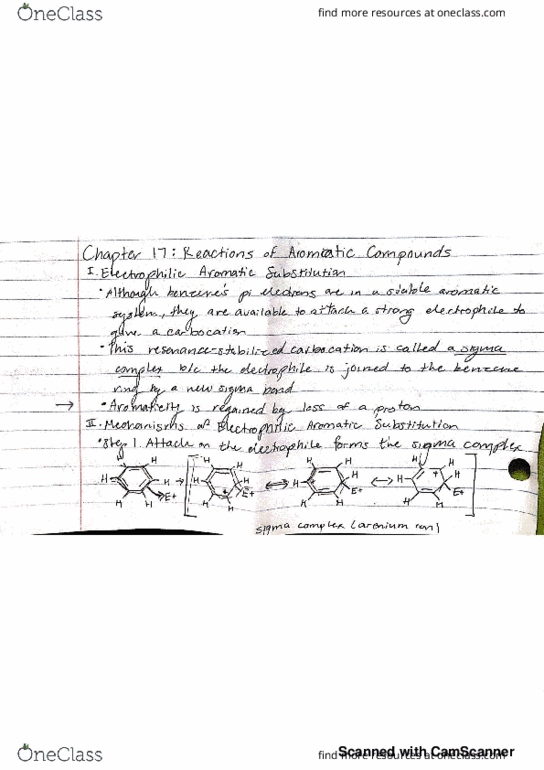 OneClass
find more resources at oneclass.com
Chapter 17: Reactions of Aromatic Compounds
I. Electrophilic Aromatic Substitution
• Although benzene's pi electrons are in a stable aromatic
system, they are available to attack a strong electrophile to
give a carbocation
• This resonance-stabilized carbocation is called a sigma
complex b/c the electrophile is joined to the benzene
ring by a new sigma bond
→ • Aromaticity is regained by loss of a proton
II. Mechanisms of Electrophilic Aromatic Substitution
• Step 1. Attack on the electrophile forms the sigma complex
H H H H H H H H
H H → H H ↔ H H ↔ H
E+ E+ E+ E+
H H H H H H H H
sigma complex (arenium ion)
OneClass
find more resources at oneclass.com
Scanned with CamScanner